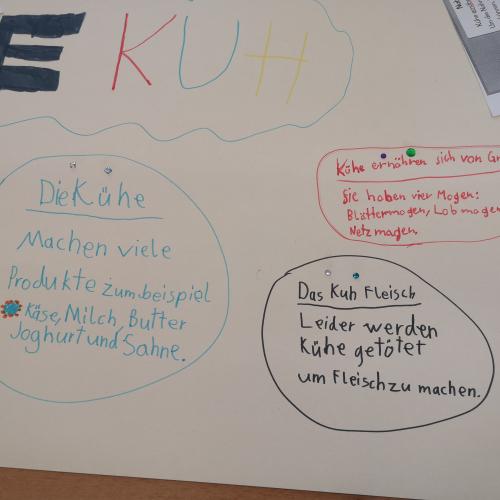 E KUH
Die Kühe
Machen viele
Produkte zum beispiel
Käse, Milch, Butter
Joghurt und Sahne.
Kühe ernähren sich von Gr
Sie haben vier Mogen:
Blättermogen, Labmogen
Netzmagen
Das Kuh Fleisch
Leider werden
Kühe getötet
um Fleisch zu machen.